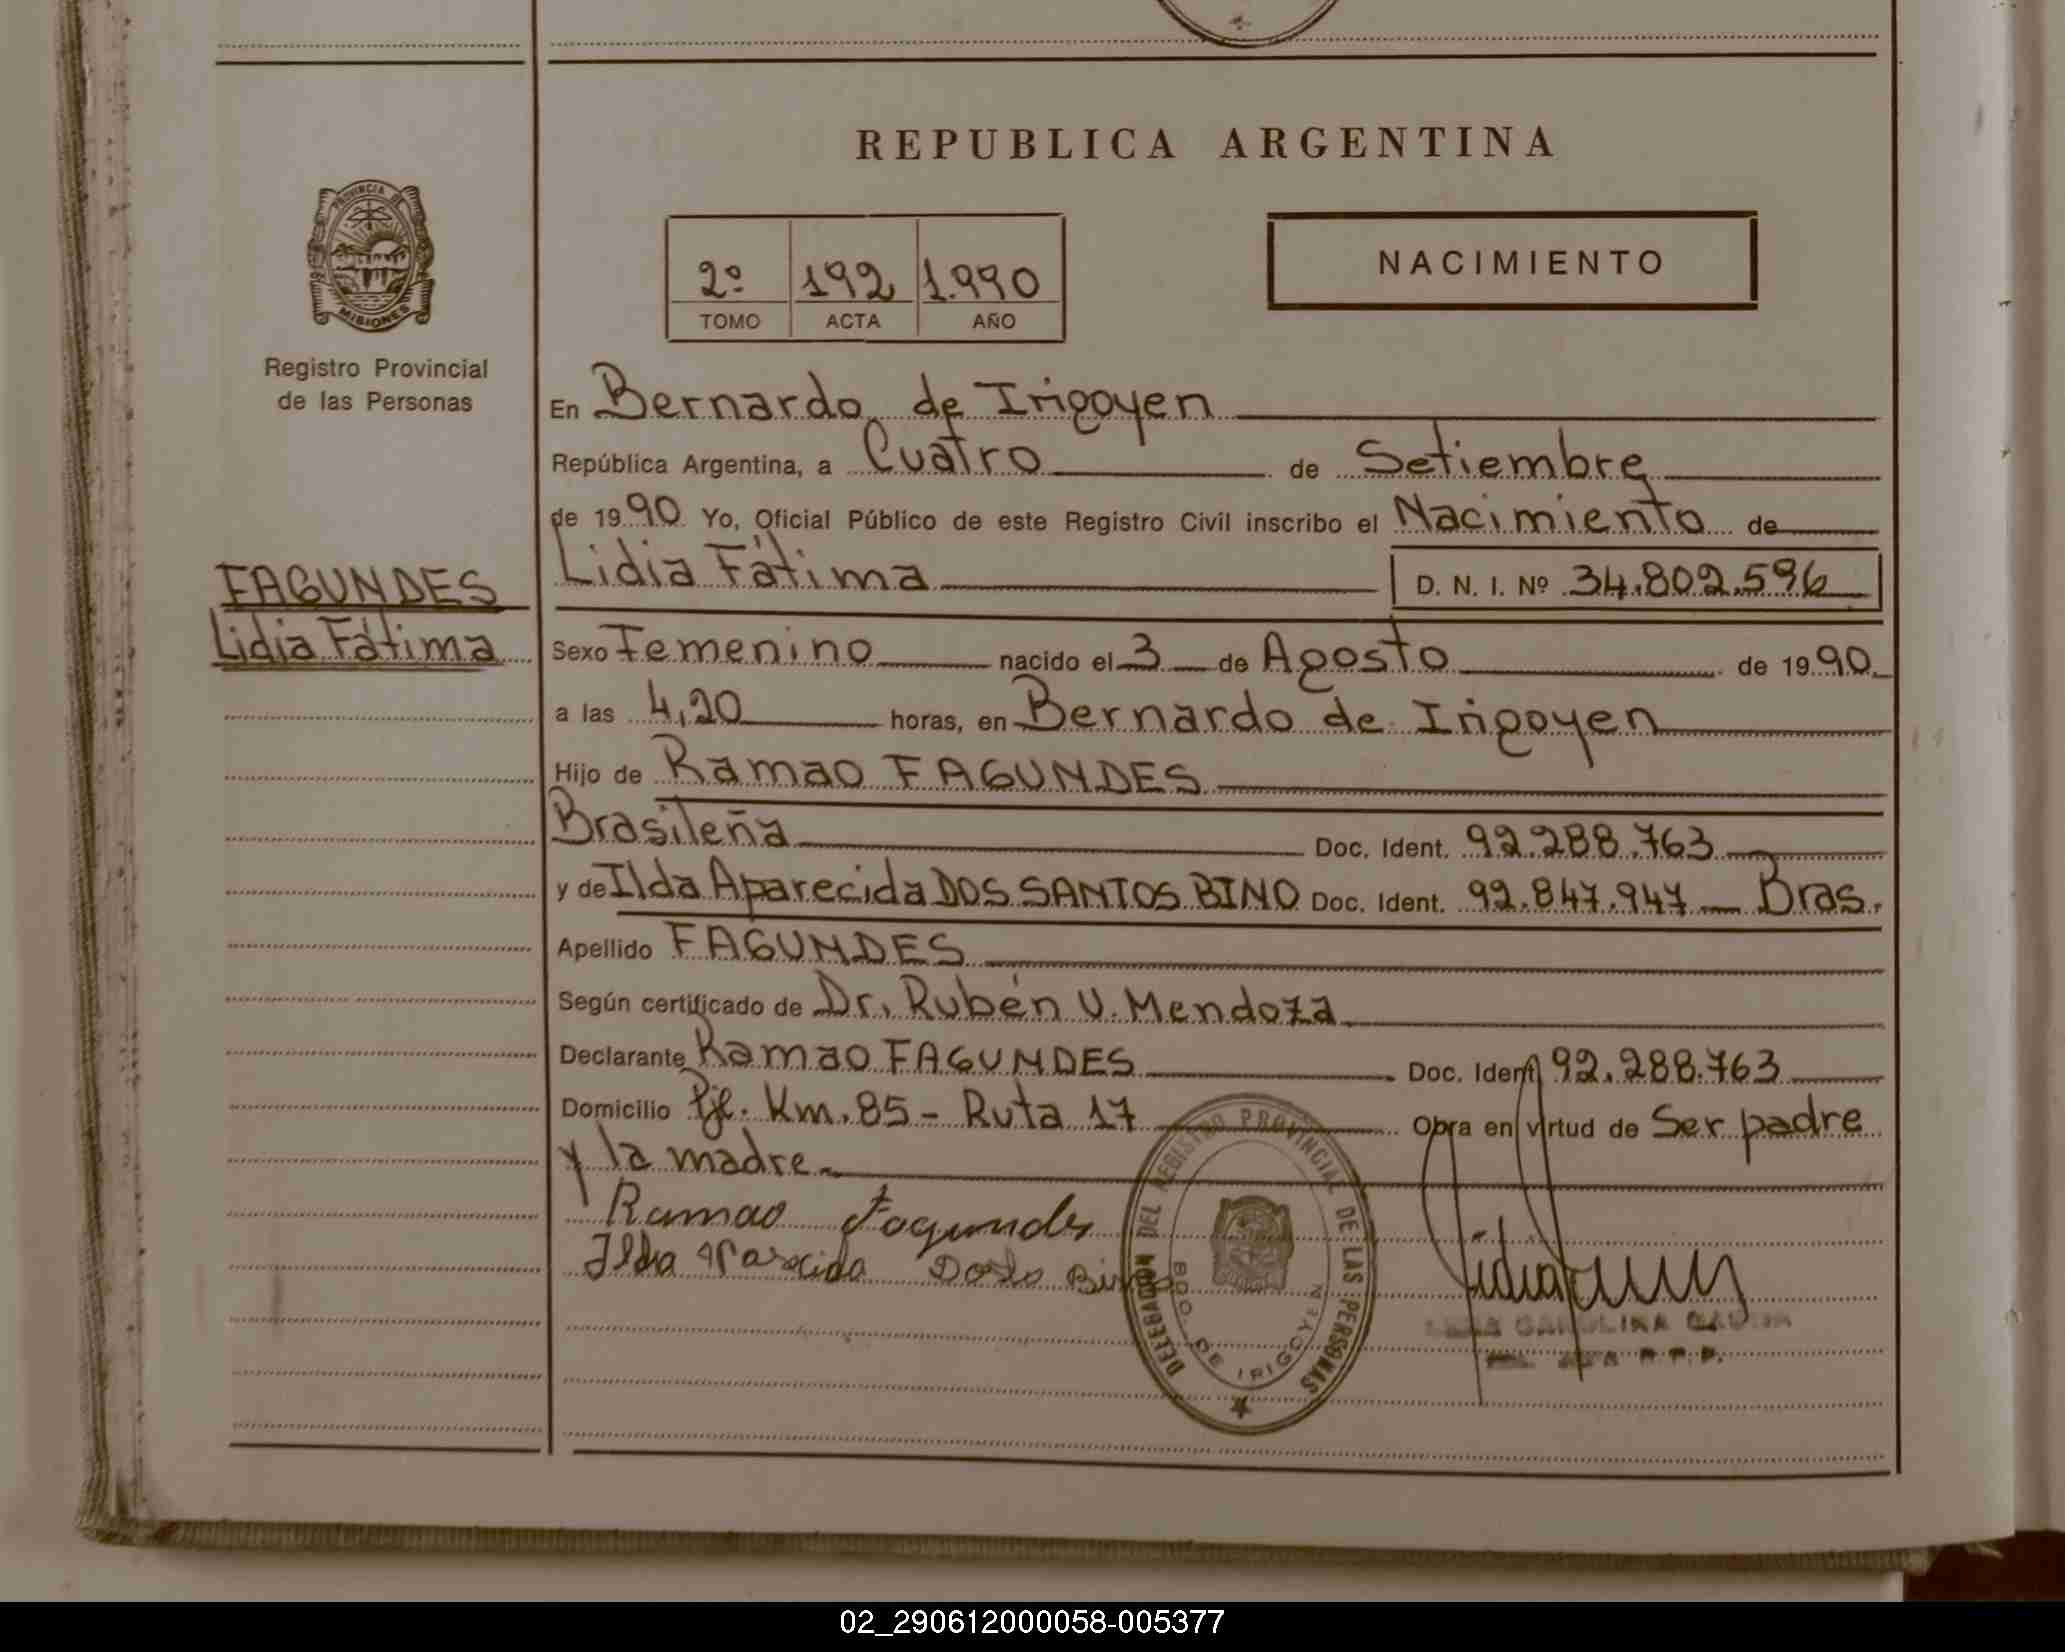 REPUBLICA ARGENTINA
PROVINCIA DE
MISIONES
Registro Provincial
de las Personas
2º 192 1.990
TOMO ACTA AÑO
NACIMIENTO
En Bernardo de Irigoyen
República Argentina, a Cuatro de Setiembre
de 1990 Yo, Oficial Público de este Registro Civil inscribo el Nacimiento de
Lidia Fátima D. N. I. Nº 34.802.596
FAGUNDES
Lidia Fátima
Sexo Femenino nacido el 3 de Agosto de 1990
a las 4,20 horas, en Bernardo de Irigoyen
Hijo de Ramao FAGUNDES
Brasileña Doc. Ident. 92.288.763
y de Ilda Aparecida DOS SANTOS BINO Doc. Ident. 92.847.947 Bras.
Apellido FAGUNDES
Según certificado de Dr. Rubén U. Mendoza
Declarante Ramao FAGUNDES Doc. Ident. 92.288.763
Domicilio Pje. Km. 85 - Ruta 17 Obra en virtud de Ser padre
y la madre.
Ramao Fagundes
Ilda Aparecida
DELEGACION DEL REGISTRO PROVINCIAL DE LAS PERSONAS
BDO. DE IRIGOYEN
02_290612000058-005377